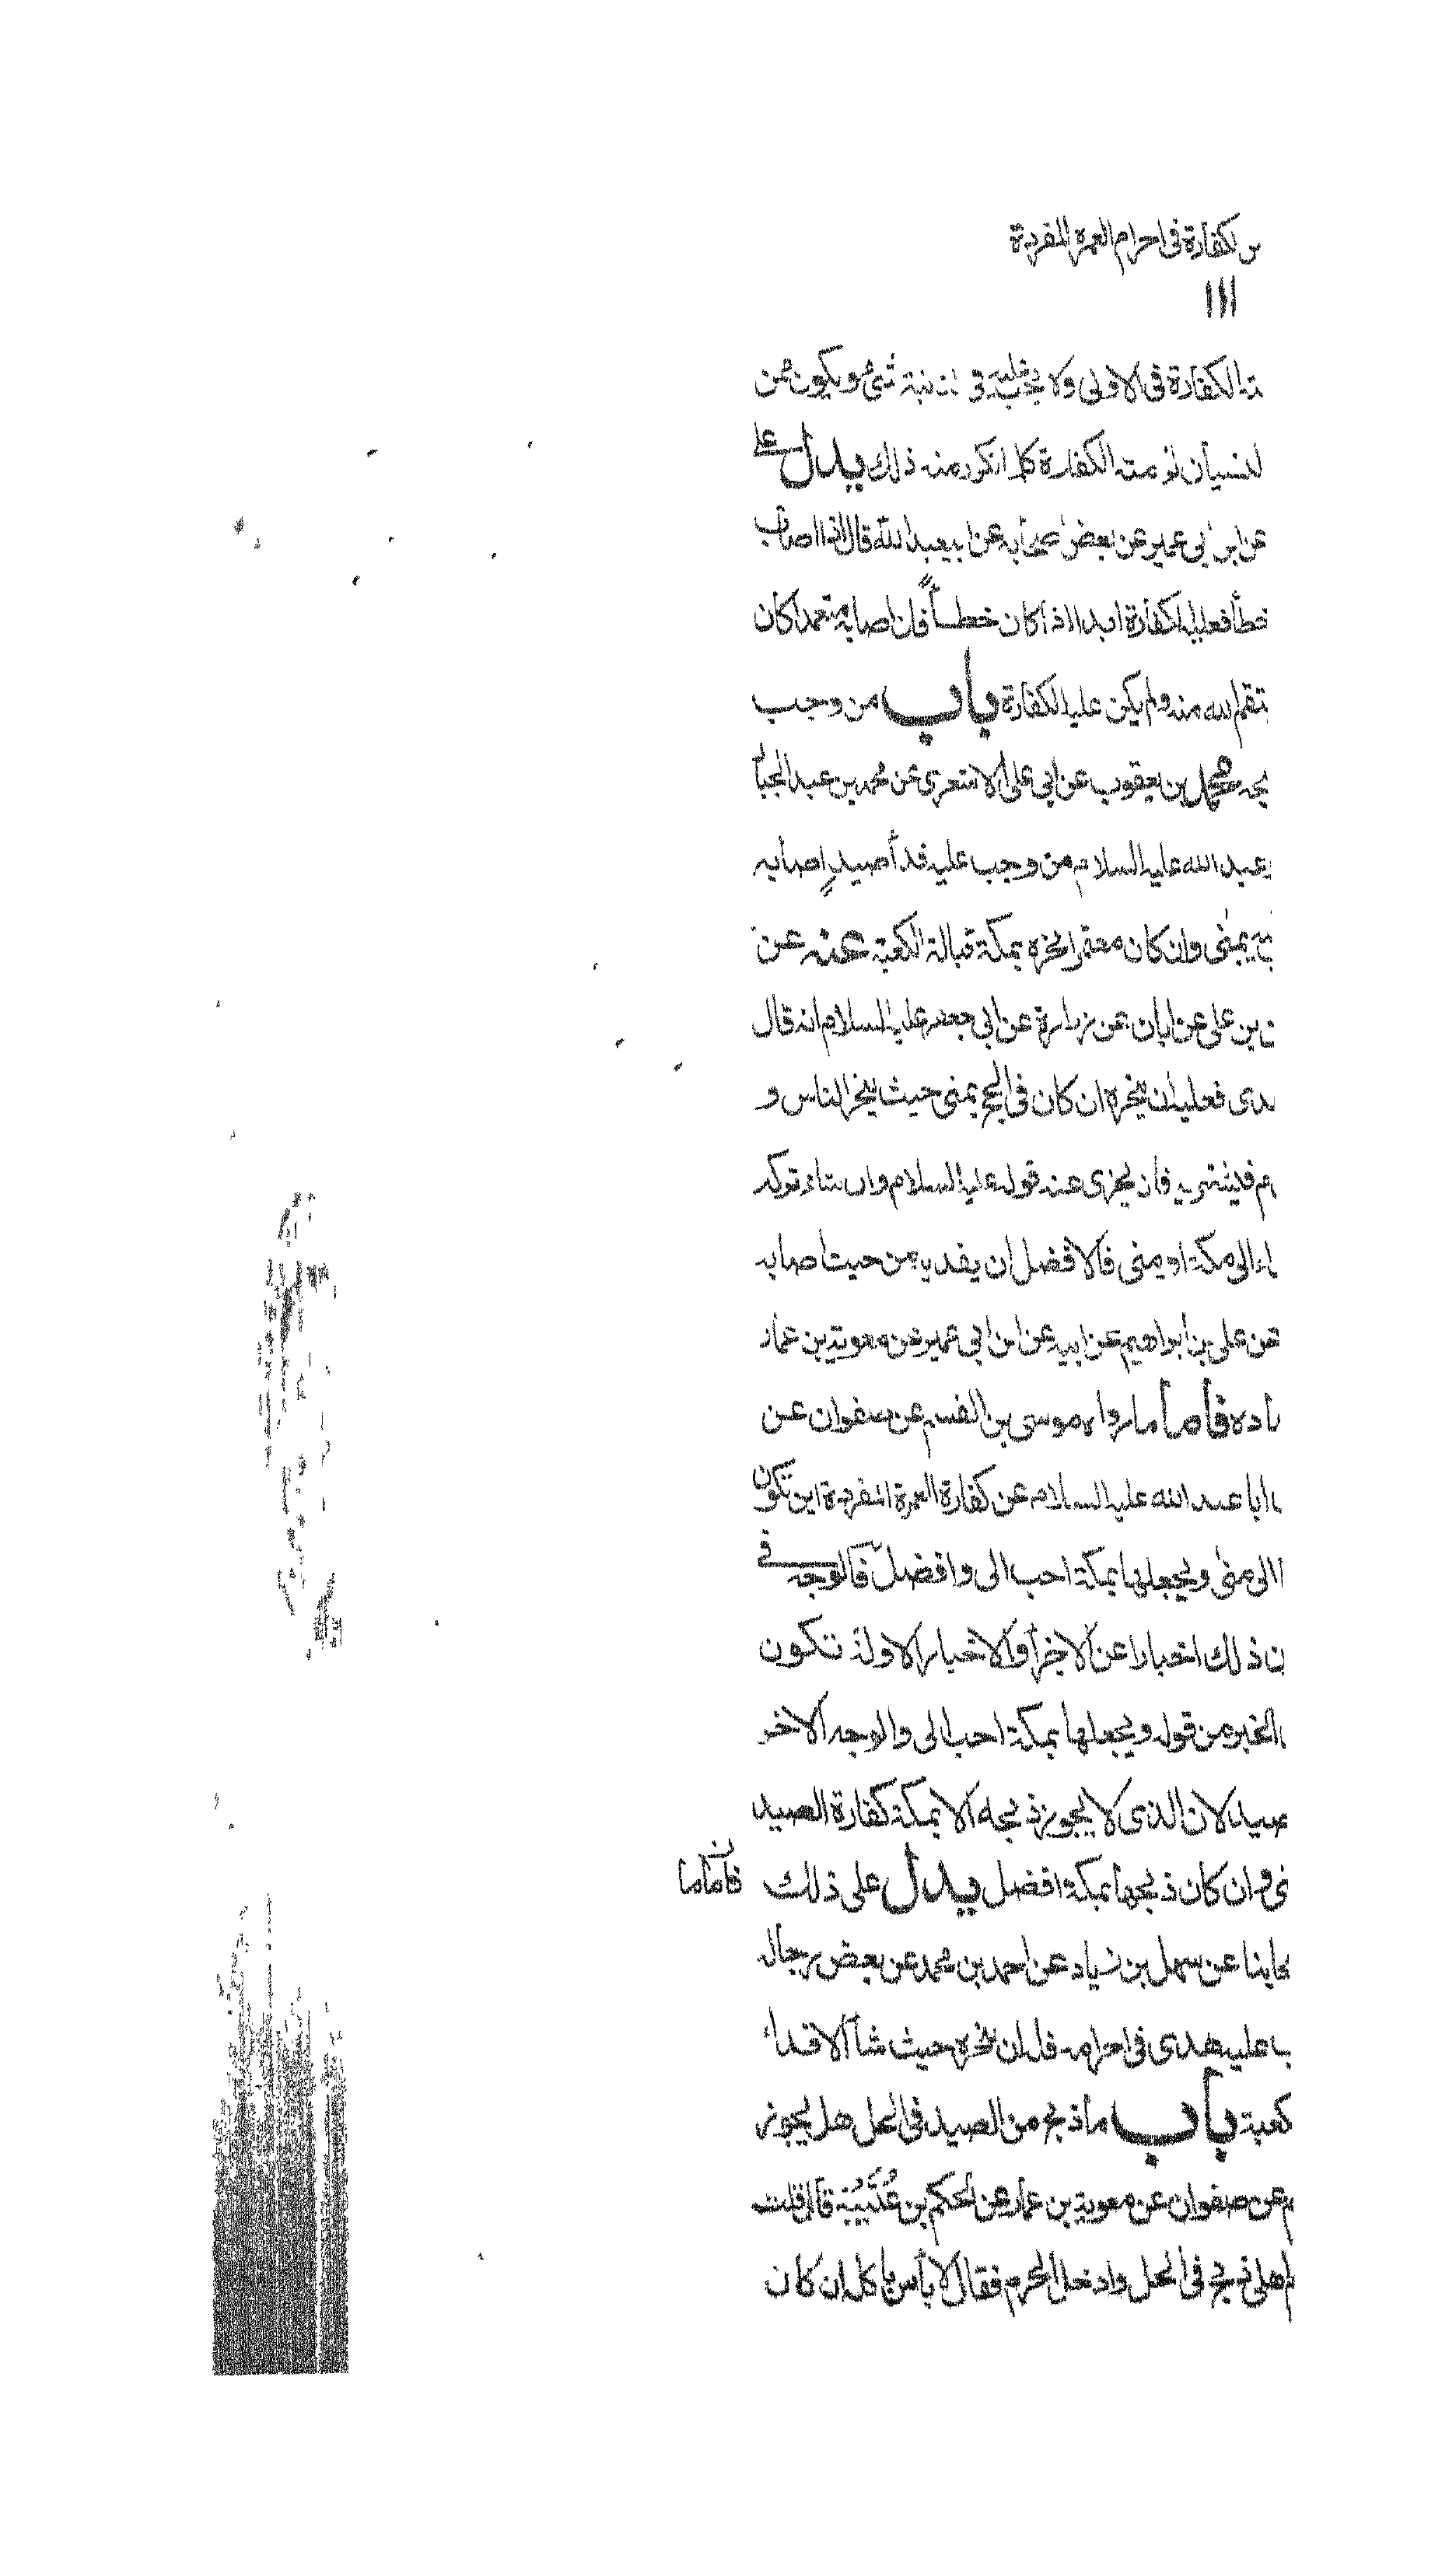 الكفارة فى احرام العمرة المفردة
١١١
الكفارة فى الاولى ولا يجب عليه فى الثانية شئ ويكون ممن
لنسيان لزمته الكفارة كلما تكرر منه ذلك يدل على
عن ابن ابى عمير عن بعض اصحابه عن ابيعبد الله قال اذا اصاب
خطأ فعليه الكفارة ابدا اذا كان خطأ فان اصابه متعمدا كان
ينتقم الله منه ولم يكن عليه الكفارة باب من وجب
محمد بن يعقوب عن ابى على الاشعرى عن محمد بن عبد الجبار
عبد الله عليه السلام من وجب عليه فداء صيد اصابه
بمنى وان كان معتمرا نحره بمكة قبالة الكعبة عنه عن
بن على عن ابان عن زرارة عن ابى جعفر عليه السلام انه قال
هدى فعليه ان ينحره ان كان فى الحج بمنى حيث ينحر الناس و
فليشتريه فان يجزى عنه قوله عليه السلام وان شاء تركه
الى مكة او منى فالافضل ان يفديه من حيث اصابه
عن على بن ابراهيم عن ابيه عن ابن ابى عمير عن معوية بن عمار
فاما ما رواه موسى بن القسم عن صفوان عن
ابا عبد الله عليه السلام عن كفارة العمرة المفردة اين تكون
الى منى ويجعلها بمكة احب الى وافضل فالوجه فى
ذلك اخبارا عن الاجزاء والاخبار الاولة تكون
الخبر من قوله ويجعلها بمكة احب الى والوجه الاخر
صيد لان الذى لا يجوز ذبحه الا بمكة كفارة الصيد
وان كان ذبحها بمكة افضل يدل على ذلك
فاما ما
عن سهل بن زياد عن احمد بن محمد عن بعض رجاله
عليه هدى فى احرامه فله ان ينحره حيث شاء الا فداء
كعبة باب ما ذبح من الصيد فى الحل هل يجوز
عن صفوان عن معوية بن عمار عن الحكم بن عُتَيْبَة قال قلت
اهلى ذبح فى الحل وادخل الحرم فقال لا بأس باكله ان كان